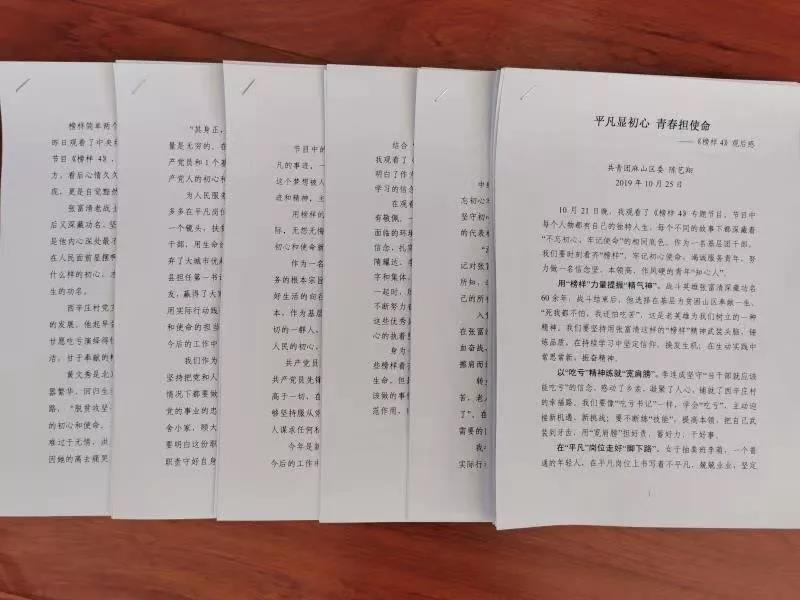 榜样简单两个
昨日观看了中央
节目《榜样 4》,
力,看后心情久久
现,更是自觉黯然
张富清老战士
后又深藏功名,坚
是他内心深处最
在人民面前显摆
什么样的初心,
生的功名。
西辛庄村党
的发展,他起早
甘愿吃亏演绎得
洁,甘于奉献的
黄文秀是北
器繁华,回归生
路,"脱贫攻坚
的初心和使命,
难过千无情,洪
因她的离去痛哭
"其身正,
量是无穷的。在
产党员和 1 个
产党人的初心和
为人民服务
多多在平凡岗
一个镜头,扶
干部,用生命
弃了大城市优
县担任第一书
友,赢得了大
用实际行动践
和使命的担当
今后的工作中
我们作为
坚持把党和
情况下都要做
党的事业的忠
舍小家,顾大
要明白这份职
职责守好自身
节目中的
凡的事迹,一
这个梦想被人
进和精神,主
用榜样的
际,无怨无悔
初心和使命新
作为一名
务的根本宗旨
好生活的向往
本,作为基层
切的一群人,
人民的初心,
共产党员
共产党员先锋
高于一切,在
够坚持服从党
人谋求任何私
今年是新
今后的工作中
结合
我观看了《榜
明白了作为
学习的信念。
在观看
有敬佩,一
面临的环境
信念,扎实
隋耀达、李
字和集体,
一起时,所
不断努力着
这些优秀
心的执着坚
身为一
些榜样看齐
生命。但是
该做的事情
范作用,
中组
忘初心
坚守初心
的代表
记对张富
所知,
己的所
入党
在张富
血奋战,
擦肩而
转业
苦,老
了",在
需要的
我
实际行
平凡显初心 青春担使命
——《榜样 4》观后感
共青团麻山区委 陈艺翔
2019 年 10 月 25 日
10 月 21 日晚,我观看了《榜样 4》专题节目,节目中
每个人物都有自己的独特人生,每个不同的故事下都深藏着
"不忘初心、牢记使命"的相同底色。作为一名基层团干部,
我们要时刻看齐"榜样",牢记初心使命,竭诚服务青年,努
力做一名信念坚、本领高、作风硬的青年"知心人"。
用"榜样"力量提振"精气神"。战斗英雄张富清深藏功名
60 余年,战斗结束后,他选择在基层为贫困山区奉献一生,
"死我都不怕,我还怕吃苦",这是老英雄为我们树立的一种
精神,我们要坚持用张富清这样的"榜样"精神武装头脑、锤
炼品质,在持续学习中坚定信仰、焕发生机;在生动实践中
常思常新、振奋精神。
以"吃亏"精神练就"宽肩膀"。李连成坚守"当干部就应该
能吃亏"的信念,感动了乡亲,凝聚了人心,铺就了西辛庄村
的幸福路。我们要像"吃亏书记"一样,学会"吃亏",主动迎
接新机遇、新挑战;要不断练"技能",提高本领,把自己武
装到牙齿,用"宽肩膀"担好责、蓄好力、干好事。
在"平凡"岗位走好"脚下路"。女子抽粪班李萌,一个普
通的年轻人,在平凡岗位上书写着不平凡,兢兢业业,坚定
1